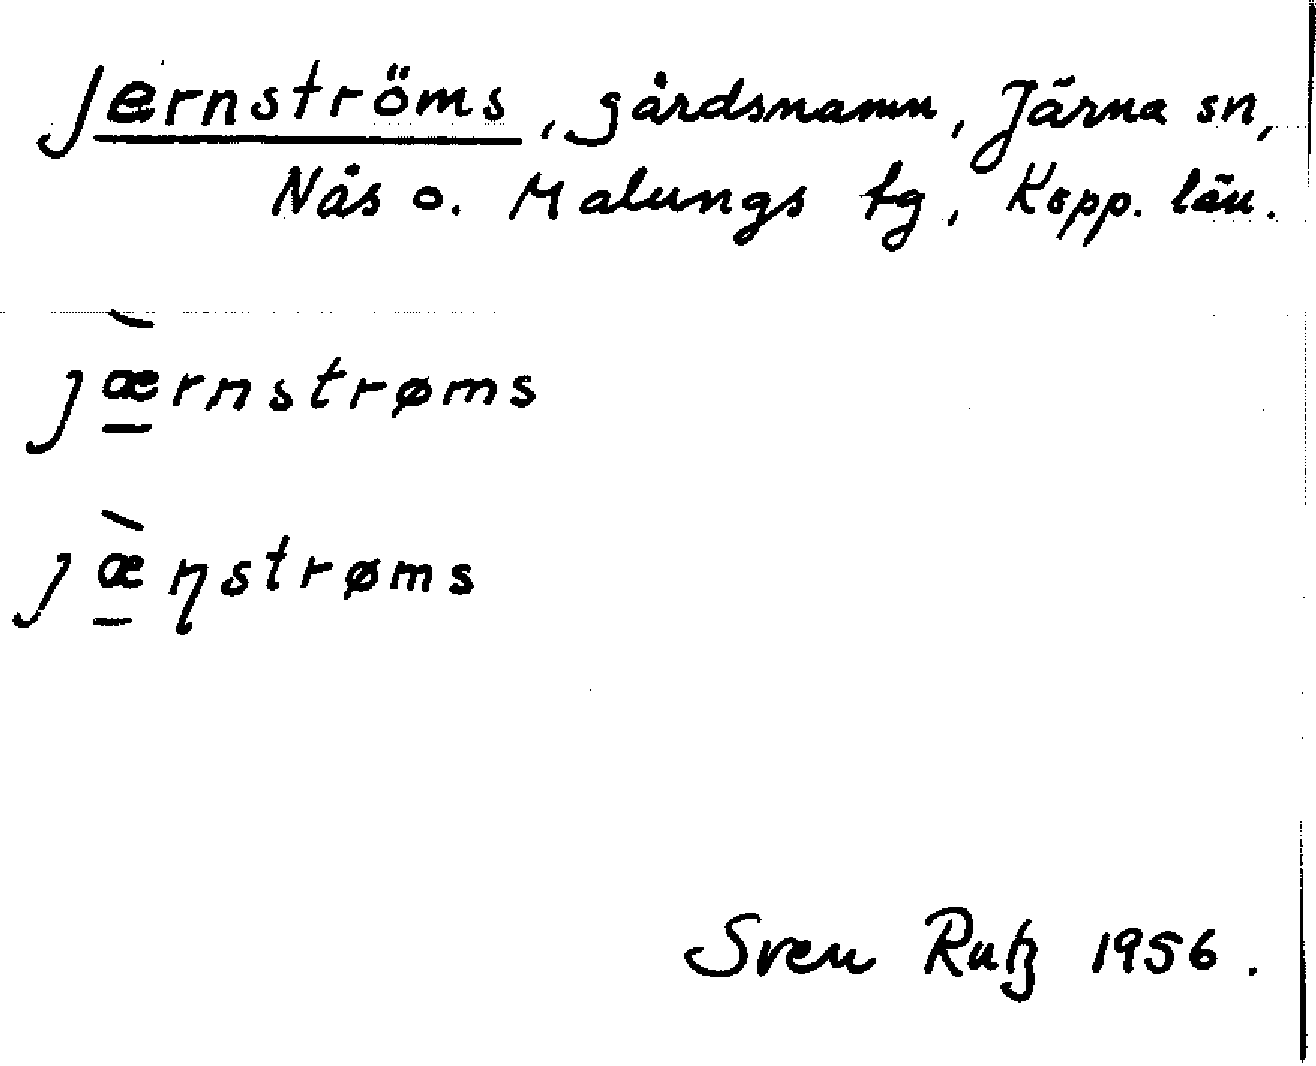 Jernströms, gårdsnamn, Järna sn,
Nås o. Malungs tg, Kopp. län.
jæ̠̀rnstrøms
jæ̠̀ɳstrøms
Sven Rutz 1956.